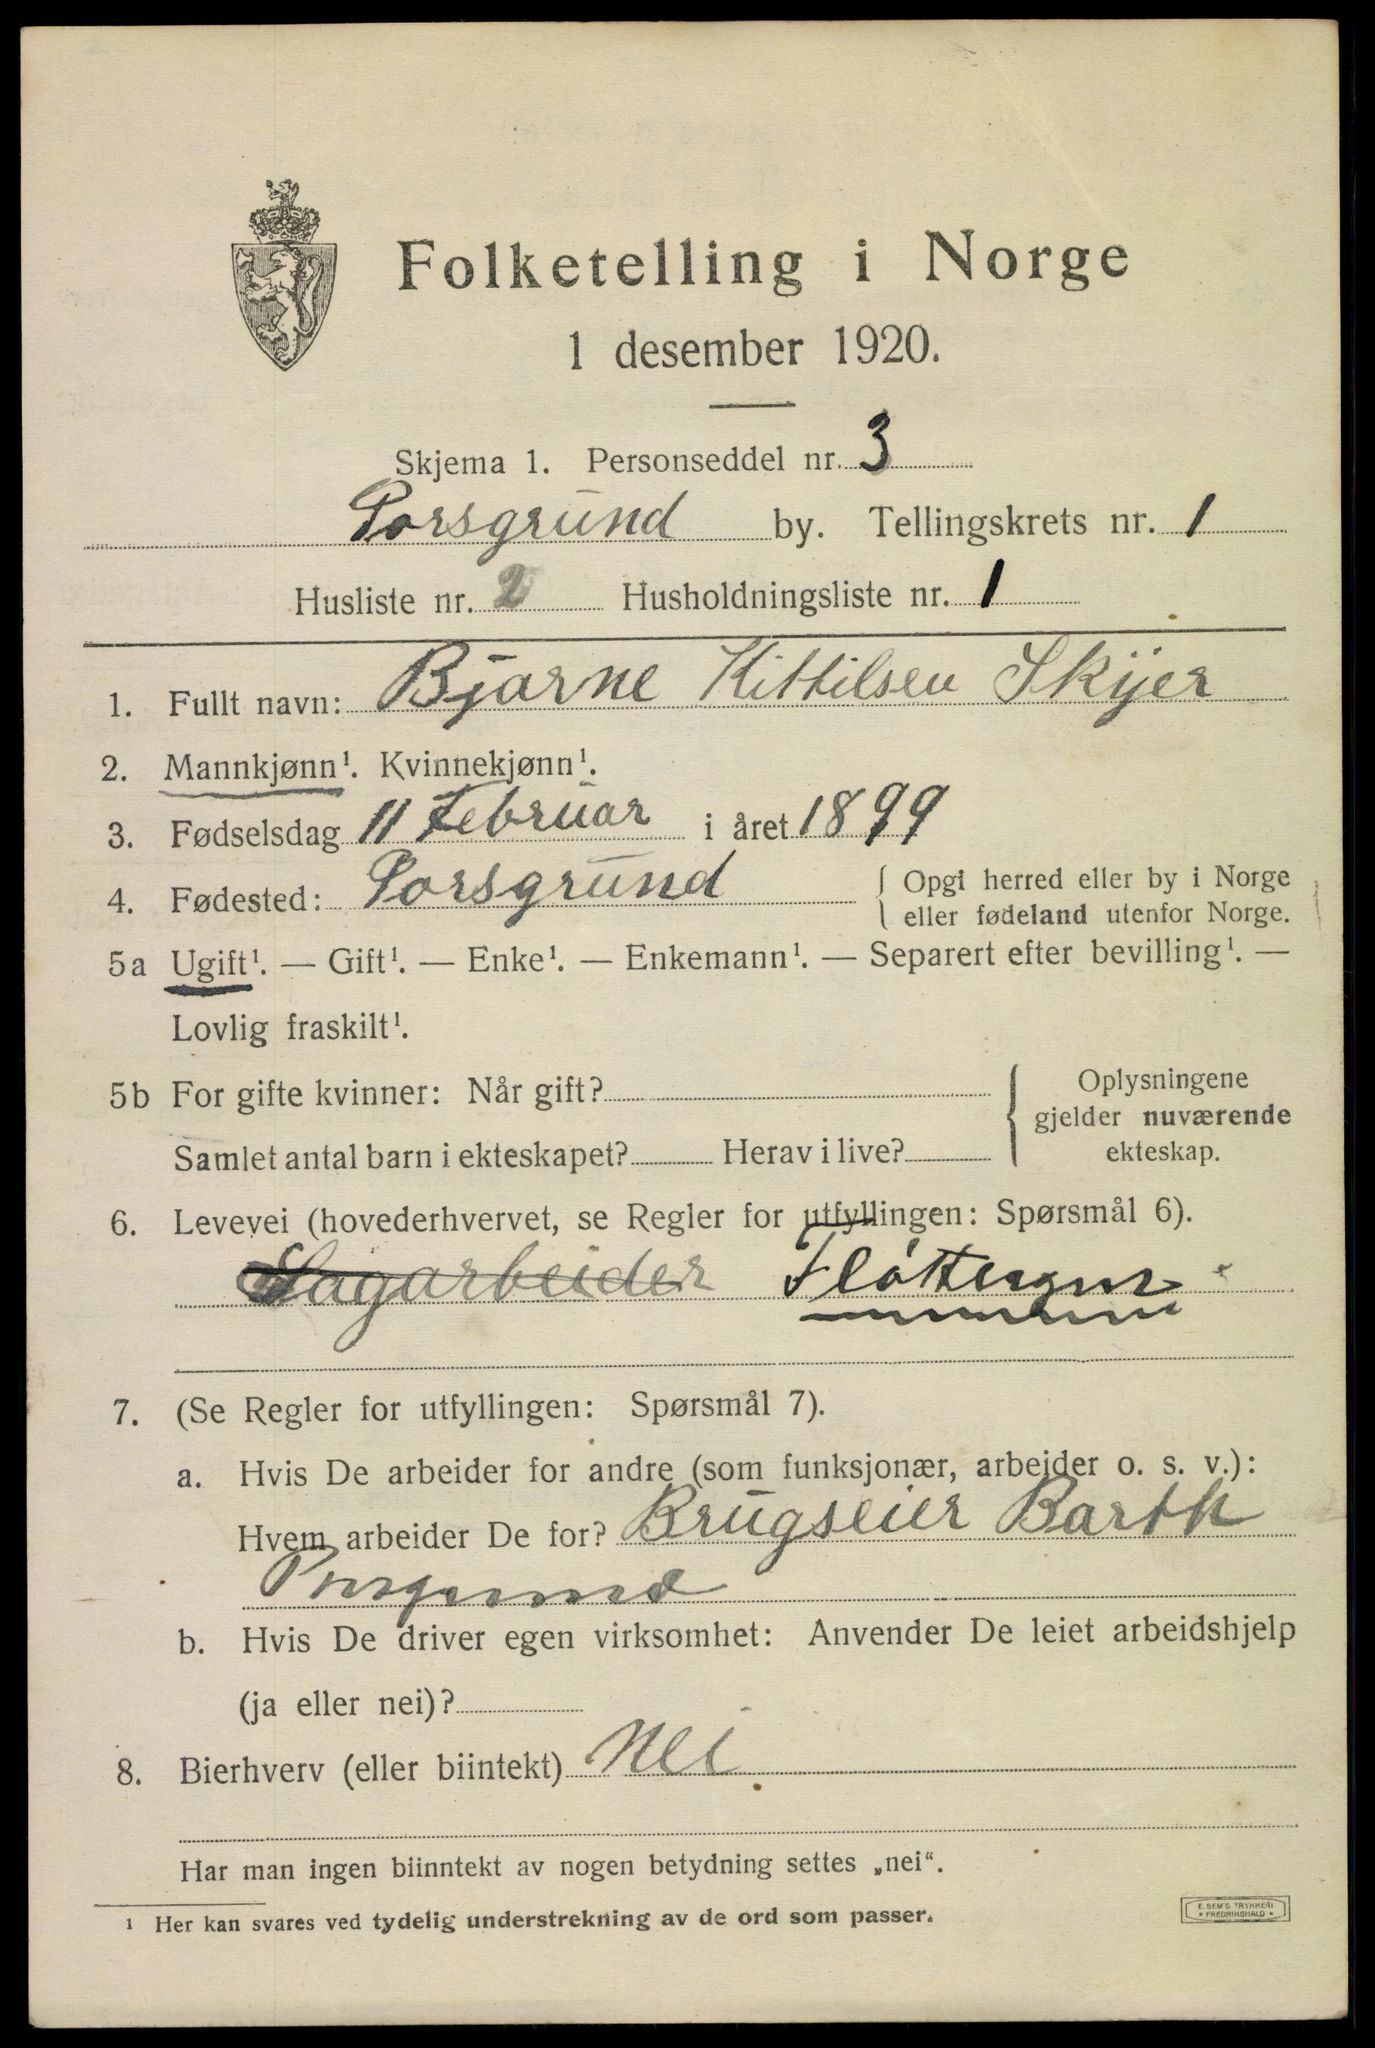 Folketelling i Norge
1 desember 1920.
Skjema 1. Personseddel nr. 3
Porsgrund by. Tellingskrets nr. 1
Husliste nr. 2 Husholdningsliste nr. 1
1. Fullt navn: Bjarne Kittilsen Skijer
2. Mannkjønn¹. Kvinnekjønn¹.
3. Fødselsdag 11 Februar i året 1899
4. Fødested: Porsgrund { Opgi herred eller by i Norge
eller fødeland utenfor Norge.
5a Ugift¹. — Gift¹. — Enke¹. — Enkemann¹. — Separert efter bevilling¹. —
Lovlig fraskilt¹.
5b For gifte kvinner: Når gift? { Oplysningene
gjelder nuværende
Samlet antal barn i ekteskapet? Herav i live? ekteskap.
6. Levevei (hovederhvervet, se Regler for utfyllingen: Spørsmål 6).
Sagarbeider
7. (Se Regler for utfyllingen: Spørsmål 7).
a. Hvis De arbeider for andre (som funksjonær, arbeider o. s. v.):
Hvem arbeider De for? Brugseier Barth
Porsgrund
b. Hvis De driver egen virksomhet: Anvender De leiet arbeidshjelp
(ja eller nei)?
8. Bierhverv (eller biintekt) Nei
Har man ingen biinntekt av nogen betydning settes „nei“.
¹ Her kan svares ved tydelig understrekning av de ord som passer.
E. SEM'S TRYKKERI
* FREDRIKSHALD *